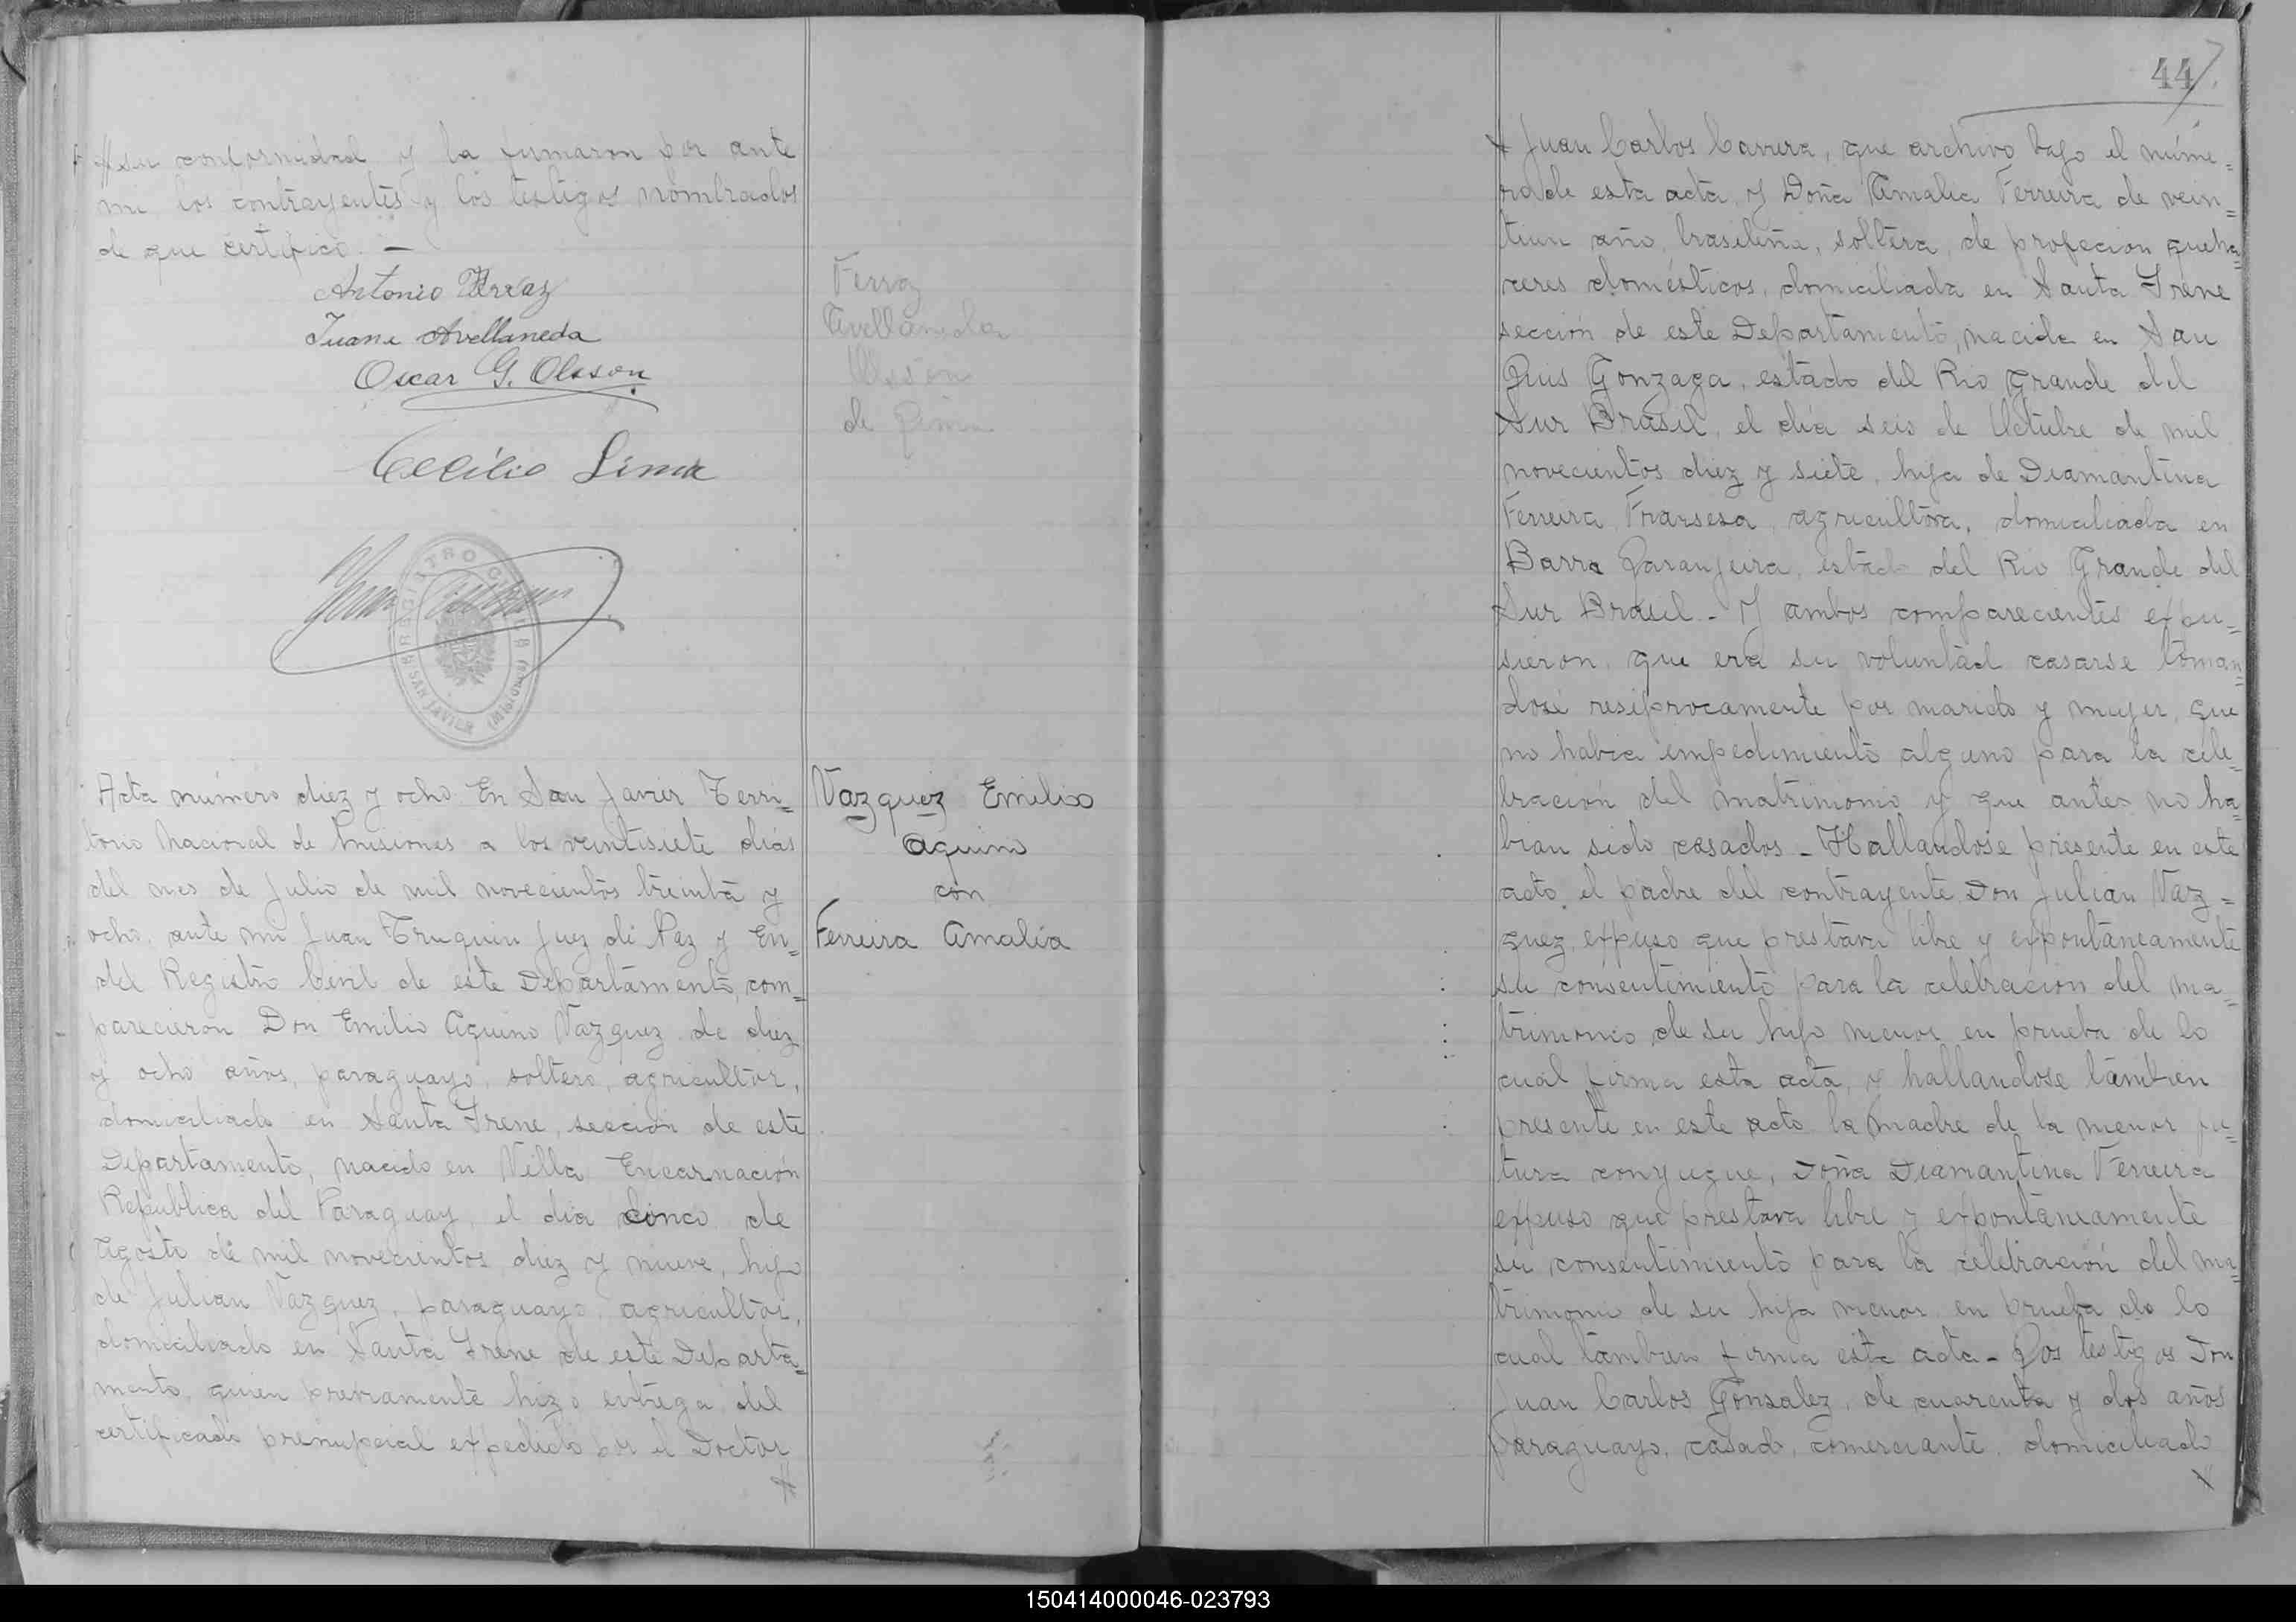 su conformidad y la firmaron por ante
mi los contrayentes y los testigos nombrados
de que certifico. —
Antonio Ferraz
Juana Avellaneda
Oscar G. Olsson
Cecilio Lima
Ferraz
Avellaneda
Olsson
de Lima
REGISTRO CIVIL
SAN JAVIER (Misiones)
Acta número diez y ocho En San Javier Terri=
torio Nacional de Misiones a los veintisiete dias
del mes de Julio de mil novecientos treinta y
ocho, ante mi Juan Truquin Juez de Paz y En=
del Registro Civil de este Departamento, com=
parecieron Don Emilio Aquino Vazquez de diez
y ocho años, paraguayo, soltero, agricultor,
domiciliado en Santa Irene, sección de este
Departamento, nacido en Villa Encarnación
Republica del Paraguay, el dia cinco de
Agosto de mil novecientos diez y nueve, hijo
de Julian Vazquez, paraguayo, agricultor,
domiciliado en Santa Irene de este Departa=
mento, quien previamente hizo entrega del
certificado prenupcial expedido por el Doctor
Vazquez Emilio
Aquino
con
Ferreira Amalia
44
Juan Carlos Carrera, que archivo bajo el núme=
ro de esta acta, y Doña Amalia Ferreira de vein=
tiun año, brasileña, soltera, de profecion queha=
ceres domésticos, domiciliada en Santa Irene
sección de este Departamento, nacida en San
Luis Gonzaga, estado del Rio Grande del
Sur Brasil, el dia seis de Octubre de mil
novecientos diez y siete, hija de Diamantina
Ferreira, Fransesa, agricultora, domiciliada en
Barra Laranjeira, estado del Rio Grande del
Sur Brasil. - Y ambos comparecientes expu=
sieron, que era su voluntad casarse toman=
dose resiprocamente por marido y mujer, que
no habia impedimento alguno para la cele=
bración del matrimonio y que antes no ha=
bian sido casados - Hallandose presente en este
acto, el padre del contrayente Don Julian Vaz=
quez, expuso que prestava libre y expontaneamente
su consentimiento para la celebracion del ma=
trimonio de su hijo menor en prueba de lo
cual firma esta acta, y hallandose tambien
presente en este acto la madre de la menor fu=
tura conyugue, Doña Diamantina Ferreira
expuso que prestava libre y expontaneamente
su consentimiento para la celebración del ma=
trimonio de su hija menor en prueba de lo
cual tambien firma esta acta - Los testigos Don
Juan Carlos Gonsalez, de cuarenta y dos años
paraguayo, casado, comerciante, domiciliado
150414000046-023793